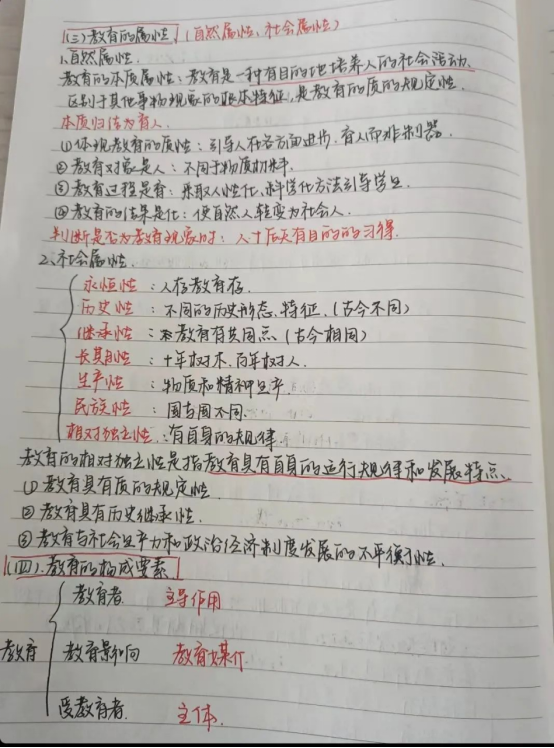 (三)教育的属性 (自然属性、社会属性)
1.自然属性.
教育的本质属性:教育是一种有目的地培养人的社会活动.
区别于其他事物现象的根本特征,是教育的质的规定性.
本质归结为育人.
①体现教育的质性:引导人在各方面进步.育人而非制器.
②教育对象是人:不同于物质
③教育过程是育:采取人性化、科学化方法引导学生.
④教育的结果是化:使自然人转变为社会人.
判断是否为教育现象时:人+后天有目的的习得.
2.社会属性.
永恒性:人存教育存.
历史性:不同的历史形态、特征.(古今不同)
继承性:教育有共同点.(古今相同)
长期性:十年树木,百年树人.
生产性:物质和精神生产.
民族性:国与国不同.
相对独立性:有自身的规律.
教育的相对独立性是指教育具有自身的运行规律和发展特点.
①教育具有质的规定性.
②教育具有历史继承性.
③教育与社会生产力和政治经济制度发展的不平衡性.
(四).教育的构成要素.
教育者 主导作用
教育 教育影响 教育媒介
受教育者. 主体.